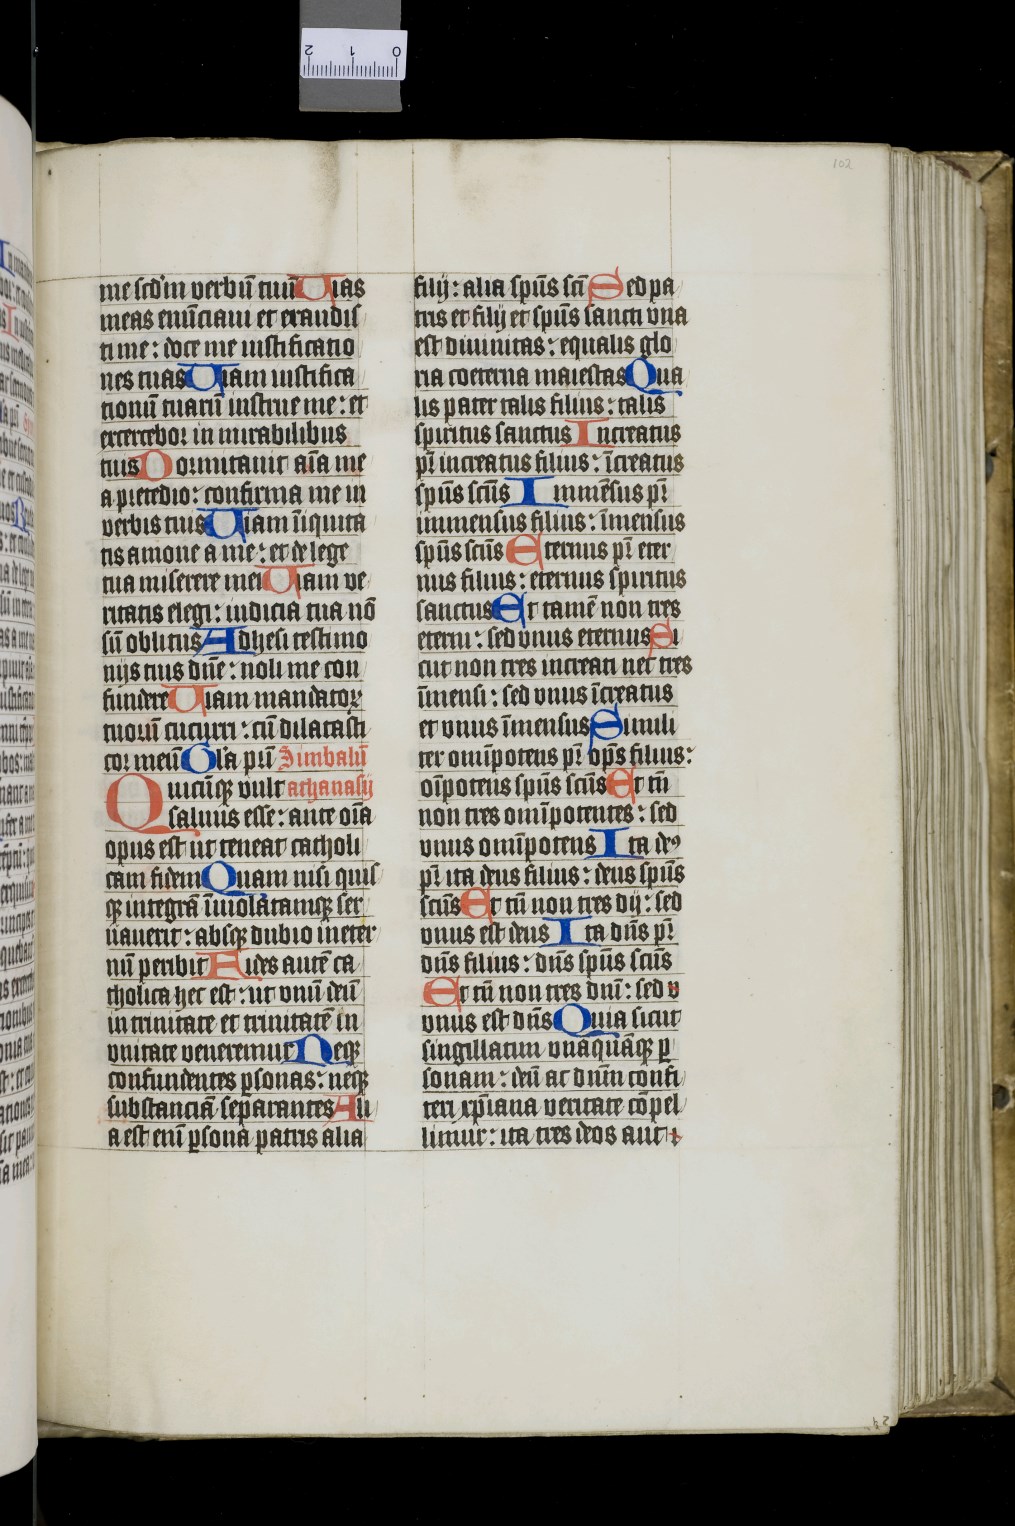 102
me scdm verbū tuū Uias
meas enūciaui et exaudis
ti me : doce me iustificatio
nes tuas Uiam iustifica
tionū tuarū instrue me : et
exercebor in mirabilibus
tuis Dormitauit aīa me
a pretedio : confirma me in
verbis tuis Uiam īiquita
tis amoue a me : et de lege
tua miserere mei Uiam ve
ritatis elegi : iudicia tua nō
sū oblitus Adhesi testimo
nijs tuis dn̄e : noli me con
fundere Uiam mandatoꝝ
tuoꝝ cucurri : cū dilatasti
cor meū Gl'a pr̄i Simbalū
Quicūqꝫ vult athanasij
saluus esse : ante oīa
opus est ut teneat catholi
cam fidem Quam nisi quis
qꝫ integrā īuiolatamqꝫ ser
uauerit : absqꝫ dubio ineter
nū peribit Fides autē ca
tholica hec est : ut vnū deū
in trinitate et trinitatē in
vnitate veneremur Neqꝫ
confundentes ꝑsonas : neqꝫ
substanciā separantes Ali
a est enī ꝑsona patris alia
filij : alia sp̄us sc̄i Sed pa
tris et filij et sp̄us sancti vna
est diuinitas : equalis glo
ria coeterna maiestas Qua
lis pater talis filius : talis
spiritus sanctus Increatus
pr̄ increatus filius : īcreatus
sp̄us sc̄us Immēsus pr̄
immensus filius : īmensus
sp̄us sc̄us Eternus pr̄ eter
nus filius : eternus spiritus
sanctus Et tamē non tres
eterni : sed vnus eternus Si
cut non tres increati nec tres
īmensi : sed vnus īcreatus
et vnus īmensus Simili
ter omīpotens pr̄ op̄s filius :
oīpotens sp̄us sc̄us Et tn̄
non tres omīpotentes : sed
vnus omīpotens Ita deꝰ
pr̄ ita deus filius : deus sp̄us
sc̄us Et tn̄ non tres dij : sed
vnus est deus Ita dn̄s pr̄
dn̄s filius : dn̄s sp̄us sc̄us
Et tn̄ non tres dn̄i : sed v
vnus est dn̄s Quia sicut
singillatim vnāquāqꝫ ꝑ
sonam : deū ac dnīm confi
teri xp̄iana veritate cōpel
limur : ita tres deos aut